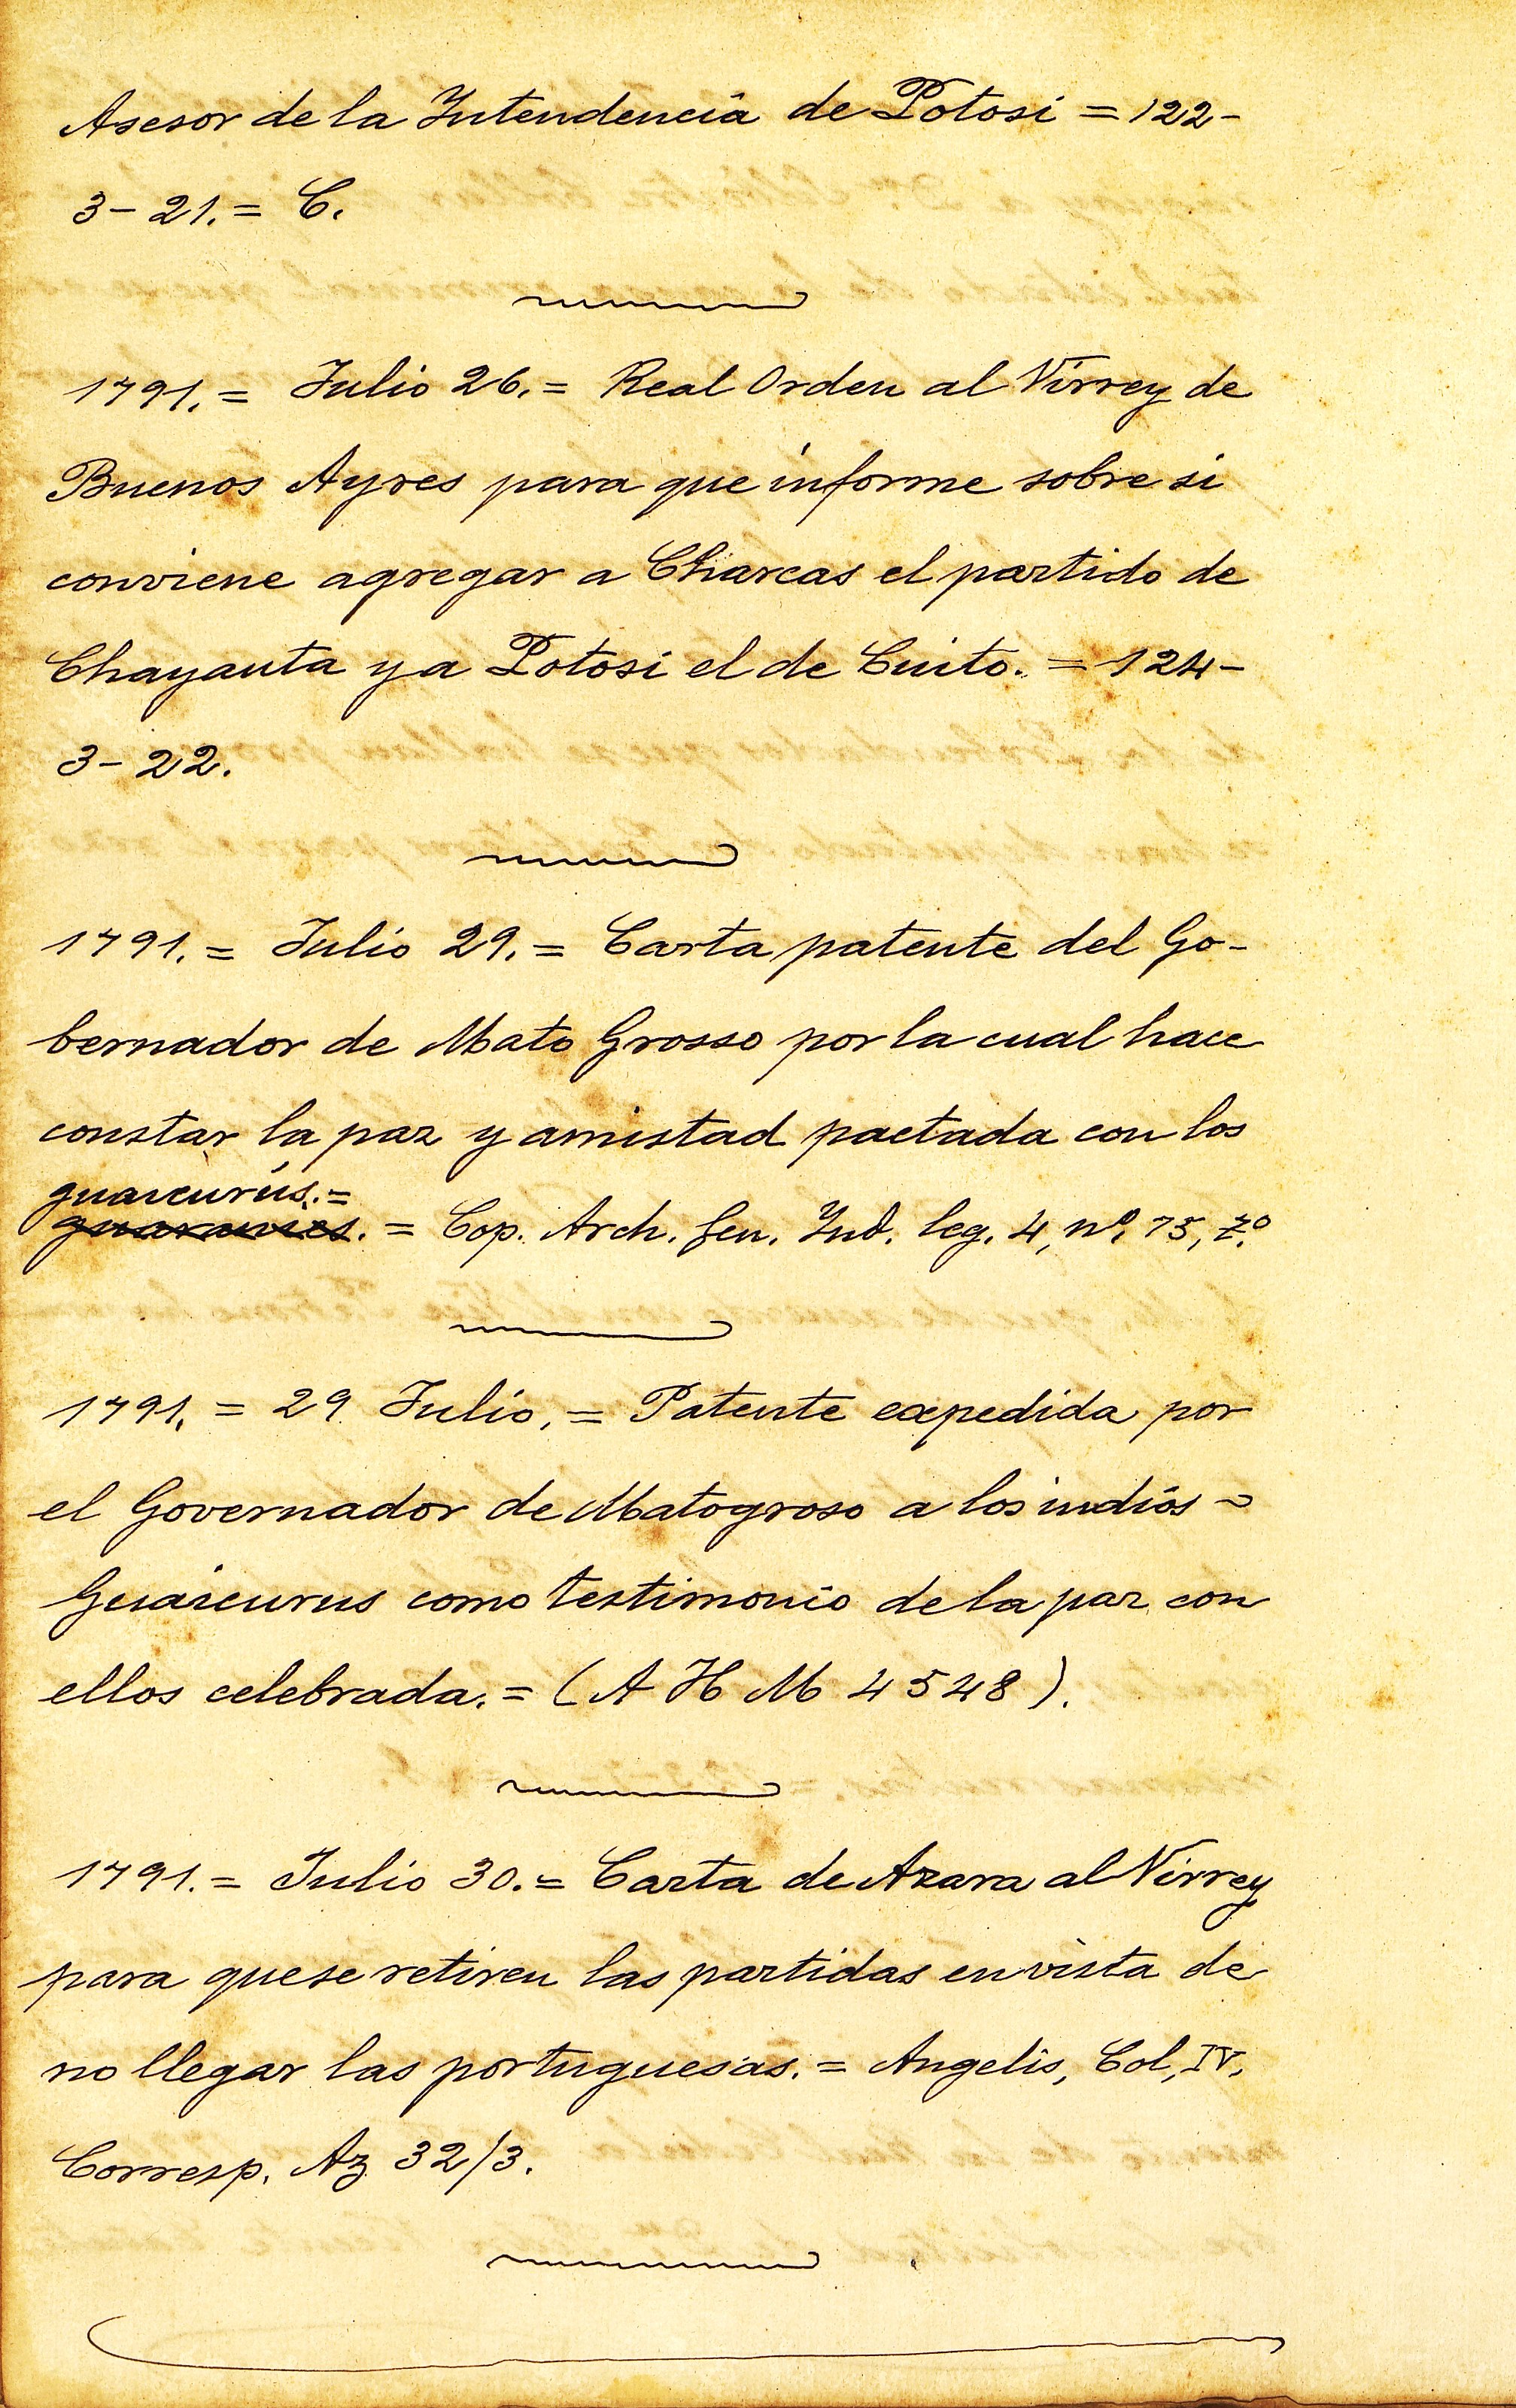 Asesor de la Intendencia de Potosi = 122-
3-21. = C.
1791. = Julio 26. = Real Orden al Virrey de
Buenos Ayres para que informe sobre si
conviene agregar a Charcas el partido de
Chayanta y a Potosi el de Cinto. = 124-
3-22.
1791. = Julio 29. = Carta patente del Go-
bernador de Mato Grosso por la cual hace
constar la paz y amistad pactada con los
guaicurús. =
guaranies. = Cop. Arch. Gen. Ind. leg. 4, nº. 15, 7.º
1791. = 29 Julio. = Patente expedida por
el Governador de Matogroso a los indios
Guaicurus como testimonio de la paz con
ellos celebrada. = (A H M 4548).
1791. = Julio 30. = Carta de Azara al Virrey
para que se retiren las partidas en vista de
no llegar las portuguesas. = Angelis, Col, IV,
Corresp. Az 32/3.